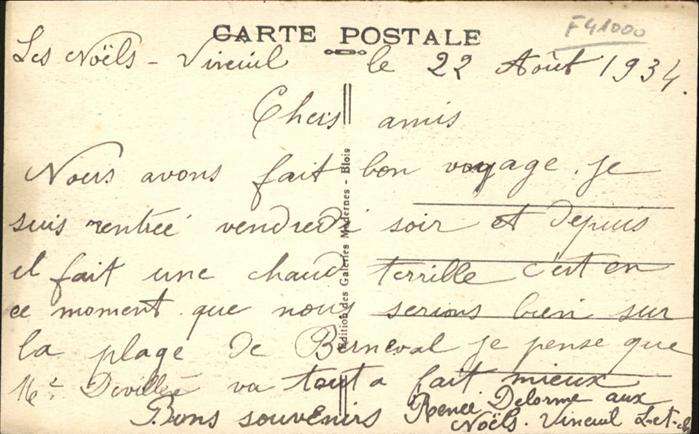 CARTE POSTALE
F41000
Les Noëls - Vineuil le 22 Août 1934.
Chers amis
Nous avons fait bon voyage. je
suis rentrée vendredi soir et depuis
il fait une chaud terrille c'est en
ce moment que nous serions bien sur
la plage de Berneval je pense que
Mr va tout a fait mieux
Bons souvenirs Renée Delorme aux
Noëls. Vineuil L-et-ch
Edition des Galeries Modernes - Blois